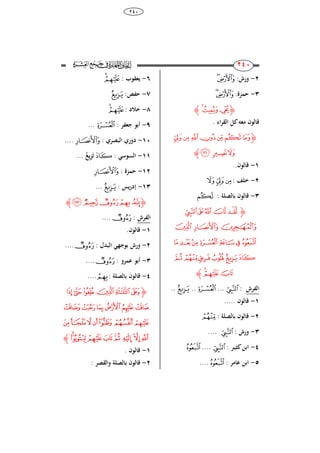 ٢٤٠
٢٤٠
٢- ورش: وَٱلْأَرْضِ
٣- حمزة: وَٱلْأَرْضِ
﴿ يُحْيِۦ وَيُمِيتُ ﴾
قالون معه كل القراء .
﴿ وَمَا لَكُم مِّن دُونِ ٱللَّهِ مِن وَلِيٍّ
وَلَا نَصِيرٍ ﴾
١- قالون.
٢- خلف : مِن وَلِيٍّ وَلَا
٣- قالون بالصلة : لَكُم
﴿ لَّقَد تَّابَ ٱللَّهُ عَلَى ٱلنَّبِيِّ
وَٱلْمُهَاجِرِينَ وَٱلْأَنصَارِ ٱلَّذِينَ
ٱتَّبَعُوهُ فِي سَاعَةِ ٱلْعُسْرَةِ مِنۢ بَعْدِ مَا
كَادَ يَزِيغُ قُلُوبُ فَرِيقٍ مِّنْهُمْ ثُمَّ
تَابَ عَلَيْهِمْ ﴾
الفرش : ٱلنَّبِيِّ .. ٱلْعُسْرَةِ .. يَزِيغُ ..
١- قالون .....
٢- قالون بالصلة : مِّنْهُمْ
٣- ورش : ٱلنَّبِيِّ ....
٤- ابن كثير : ٱتَّبَعُوهُ ....
٥- ابن عامر : ٱتَّبَعُوهُ ....
٦- يعقوب : عَلَيْهِمْ
٧- حفص: يَزِيغُ
٨- خلاد : عَلَيْهِمْ
٩- أبو جعفر : ٱلْعُسْرَةِ ...
١٠- دوري البصري : وَٱلْأَنصَارِ ....
١١- السوسي : كَادَ يَزِيغُ ...
١٢- حمزة : وَٱلْأَنصَارِ
١٣- إدريس : يَزِيغُ ...
﴿ إِنَّهُۥ بِهِمْ رَءُوفٌ رَّحِيمٌ ﴾
الفرش : رَءُوفٌ ....
١- قالون.
٢- ورش بوجهي البدل : رَءُوفٌ ....
٣- أبو عمرو : رَءُوفٌ ....
٤- قالون بالصلة : بِهِمْ ....
﴿ وَعَلَى ٱلثَّلَاثَةِ ٱلَّذِينَ خُلِّفُوا حَتَّىٰٓ إِذَا
ضَاقَتْ عَلَيْهِمُ ٱلْأَرْضُ بِمَا رَحُبَتْ وَضَاقَتْ
عَلَيْهِمْ أَنفُسُهُمْ وَظَنُّوٓا أَن لَّا مَلْجَأَ مِنَ
ٱللَّهِ إِلَّآ إِلَيْهِ ثُمَّ تَابَ عَلَيْهِمْ لِيَتُوبُوٓا ﴾
١- قالون .
٢- قالون بالصلة والقصر :